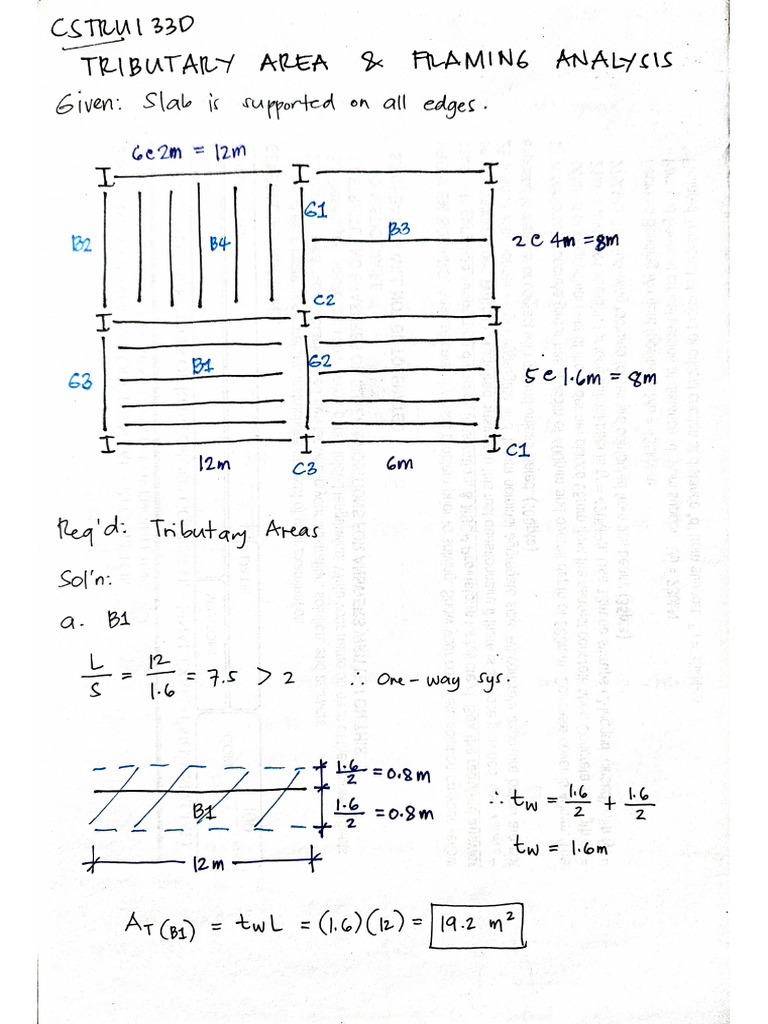 CSTRU133D
TRIBUTARY AREA & FRAMING ANALYSIS
Given: Slab is supported on all edges.
6@2m = 12m
G1
B2
B4
B3
2@4m = 8m
C2
G3
B1
G2
5@1.6m = 8m
12m
C3
6m
C1
Req'd: Tributary Areas
Sol'n:
a. B1
L/S = 12/1.6 = 7.5 > 2 ∴ One-way sys.
1.6/2 = 0.8m
B1
1.6/2 = 0.8m
∴ tw = 1.6/2 + 1.6/2
tw = 1.6m
12m
AT(B1) = twL = (1.6)(12) = 19.2 m²